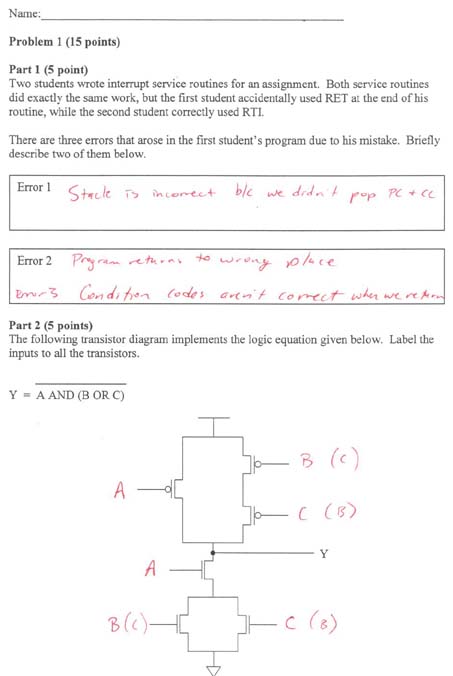 Name:
Problem 1 (15 points)
Part 1 (5 point)
Two students wrote interrupt service routines for an assignment. Both service routines
did exactly the same work, but the first student accidentally used RET at the end of his
routine, while the second student correctly used RTI.
There are three errors that arose in the first student's program due to his mistake. Briefly
describe two of them below.
Error 1 Stack is incorrect b/c we didn't pop PC + CC
Error 2 Program returns to wrong place
Error 3 Condition codes aren't correct when we return
Part 2 (5 points)
The following transistor diagram implements the logic equation given below. Label the
inputs to all the transistors.
Y = A AND (B OR C)
B (C)
A
C (B)
Y
A
B(C) C (B)